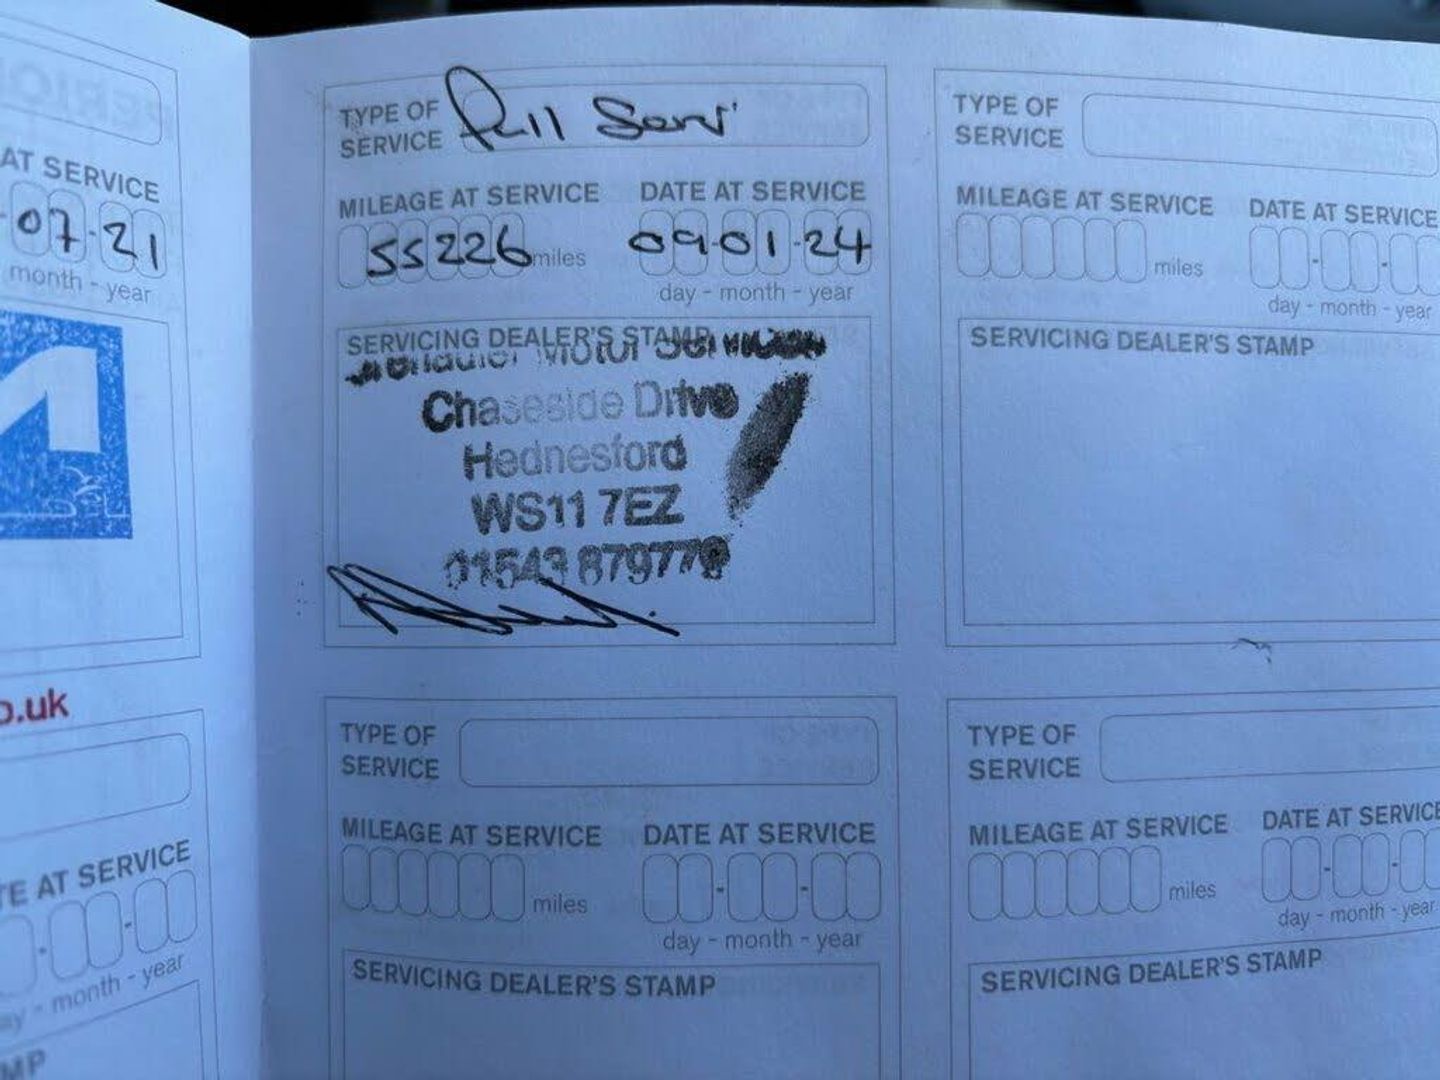 AT SERVICE
07-21
month - year
o.uk
TE AT SERVICE
month - year
TYPE OF
SERVICE
Full Servi
MILEAGE AT SERVICE
55226 miles
DATE AT SERVICE
09-01-24
day - month - year
SERVICING DEALER'S STAMP
Motor
Chaseside Drive
Hednesford
WS11 7EZ
01543 879779
TYPE OF
SERVICE
MILEAGE AT SERVICE
miles
DATE AT SERVICE
day - month - year
SERVICING DEALER'S STAMP
TYPE OF
SERVICE
MILEAGE AT SERVICE
miles
DATE AT SERVICE
day - month - year
SERVICING DEALER'S STAMP
TYPE OF
SERVICE
MILEAGE AT SERVICE
miles
DATE AT SERVICE
day - month - year
SERVICING DEALER'S STAMP